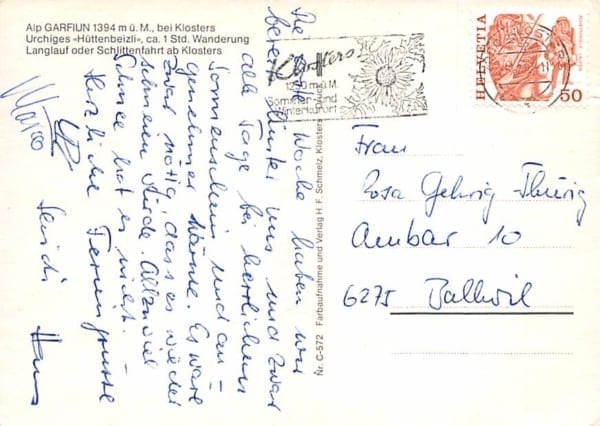 Alp GARFIUN 1394 m ü. M., bei Klosters
Urchiges «Hüttenbeizli», ca. 1 Std. Wanderung
Langlauf oder Schlittenfahrt ab Klosters
Die Woche haben wir
bereits hinter uns und zwar
alle Tage bei herrlichem
Sonnenschein und an=
genehmer Wärme. Es wäre
zwar nötig, dass es wieder
schneien würde. Allzuviel
Schnee hat es nicht.
Herzliche Feriengrüsse
Marco
Heidi
Hans
Nr. C-572 Farbaufnahme und Verlag H. F. Schmelz, Klosters
Klosters
Sommer- und
Winterkurort
HELVETIA
50
Frau
Rosa Gehrig-Thürig
Ambar 10
6275 Ballwil